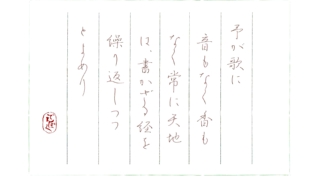 予が歌に
音もなく香も
なく常に天地
は、書かざる経を
繰り返しつつ
とあり